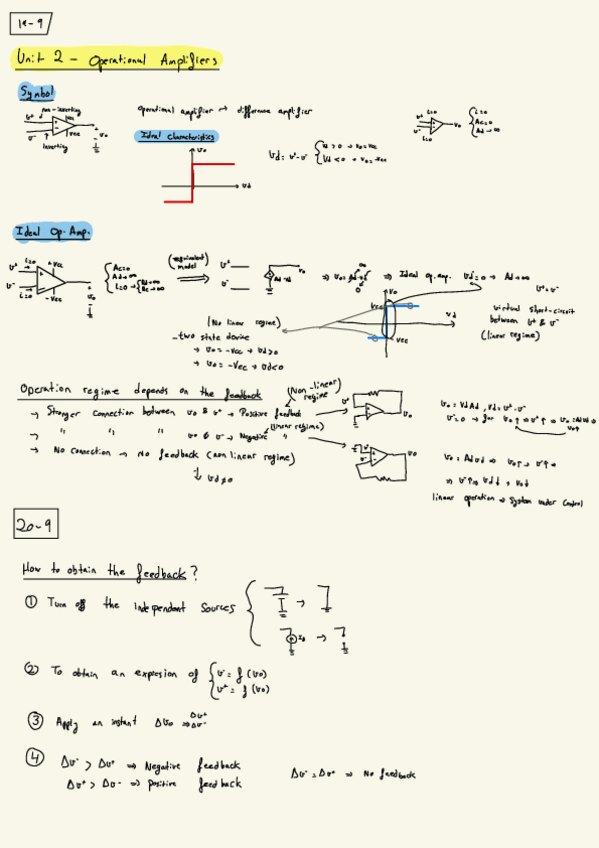 19-9
Unit 2 - Operational Amplifiers
Symbol
non-inverting
V+
V-
+Vcc
-Vcc
Vo
Inverting
Operational amplifier → difference amplifier
Ideal Characteristics
Vo
Vd
Vd = V+ - V- { Vd > 0 → Vo = Vcc
Vd < 0 → Vo = -Vcc
i=0
V+
V-
i=0
Vo
{ i=0
Ao=0
Ad→∞
Ideal Op. Amp.
i=0
V+
V-
i=0
+Vcc
-Vcc
Vo
{ Ac=0
Ad→∞
i=0 → { Rd=∞
Rc=∞
(equivalent model)
V+
V-
Vo
⇒ Ideal op. amp. Vd=0 → Ad→∞
V+=V-
Virtual Short-circuit
between V+ & V-
(linear regime)
Vo
Vcc
Vd
-Vcc
(No linear regime)
- two state device
→ Vo = -Vcc → Vd>0
→ Vo = -Vcc → Vd<0
Operation regime depends on the feedback
→ Stronger connection between Vo & V+ → Positive feedback
(Non-linear) regime
→ " " " Vo & V- → Negative "
(linear regime)
→ No connection → No feedback (non linear regime)
↓ Vd≠0
V+
Vo
Vo = Vd Ad, Vd = V+ - V-
V-=0 → for Vo↑ → V+↑ → Vo = Ad Vd
Vo↑
V-
Vo
Vo = Ad Vd ⇒ Vo↑ → V-↑
linear operation → System under control
20-9
How to obtain the feedback?
① Turn off the independent Sources
② To obtain an expresion of { V- = f(Vo)
V+ = f(Vo)
③ Apply an instant ΔVo ⇒ ΔV+
ΔV-
④ ΔV- > ΔV+ ⇒ Negative feedback
ΔV+ > ΔV- ⇒ positive feedback
ΔV- = ΔV+ ⇒ No feedback